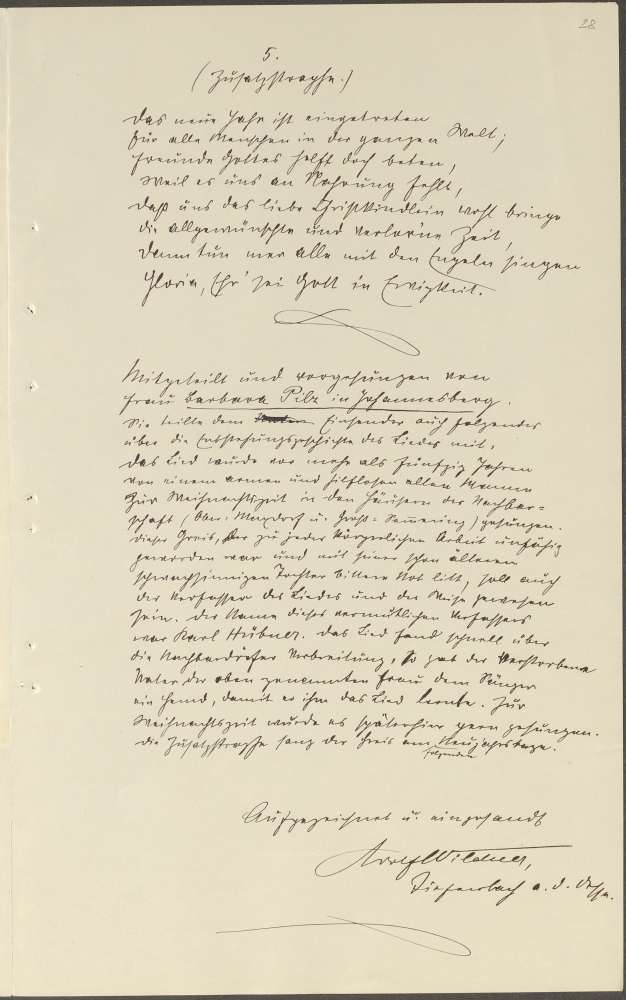 28
5.
(Zusatzstrophe.)
Das neue Jahr ist eingetreten
für alle Menschen in der ganzen Welt;
Freunde Gottes helft doch beten,
weil es uns an Nahrung fehlt,
daß uns das liebe Christkindlein wohl bringe
die allgewünschte und verlor'ne Zeit,
dann tun mer alle mit den Engeln singen
Gloria, Ehr' sei Gott in Ewigkeit.
Mitgeteilt und vorgesungen von
Frau Barbara Pilz in Johannesberg.
Sie teilte dem Einsender auch folgendes
über die Entstehungsgeschichte des Liedes mit.
Das Lied wurde vor mehr als fünfzig Jahren
von einem armen und hilflosen alten Manne
zur Weihnachtszeit in den Häusern der Nachbar-
schaft (Ober-Maxdorf u. Groß-Semmering) gesungen.
Dieser Greis, der zu jeder körperlichen Arbeit unfähig
geworden war und mit seiner schon älteren
schwachsinnigen Tochter bittere Not litt, soll auch
der Verfasser des Liedes und der Weise gewesen
sein. Der Name dieses vermutlichen Verfassers
war Karl Hübner. Das Lied fand schnell über
die Nachbardörfer Verbreitung, so gab der verstorbene
Vater der oben genannten Frau dem Sänger
ein Hemd, damit er ihm das Lied lernte. Zur
Weihnachtszeit wurde es späterhin gern gesungen.
Die Zusatzstrophe sang der Greis am Neujahrstage.
folgenden
Aufgezeichnet u. eingesandt
Adolf Wildner,
Tiefenbach a. d. Desse.